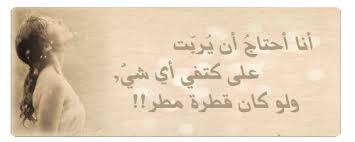 أنا أحتاجُ أن يُربّت
على كتفي أي شيُ,
ولو كان قطرة مطر!!